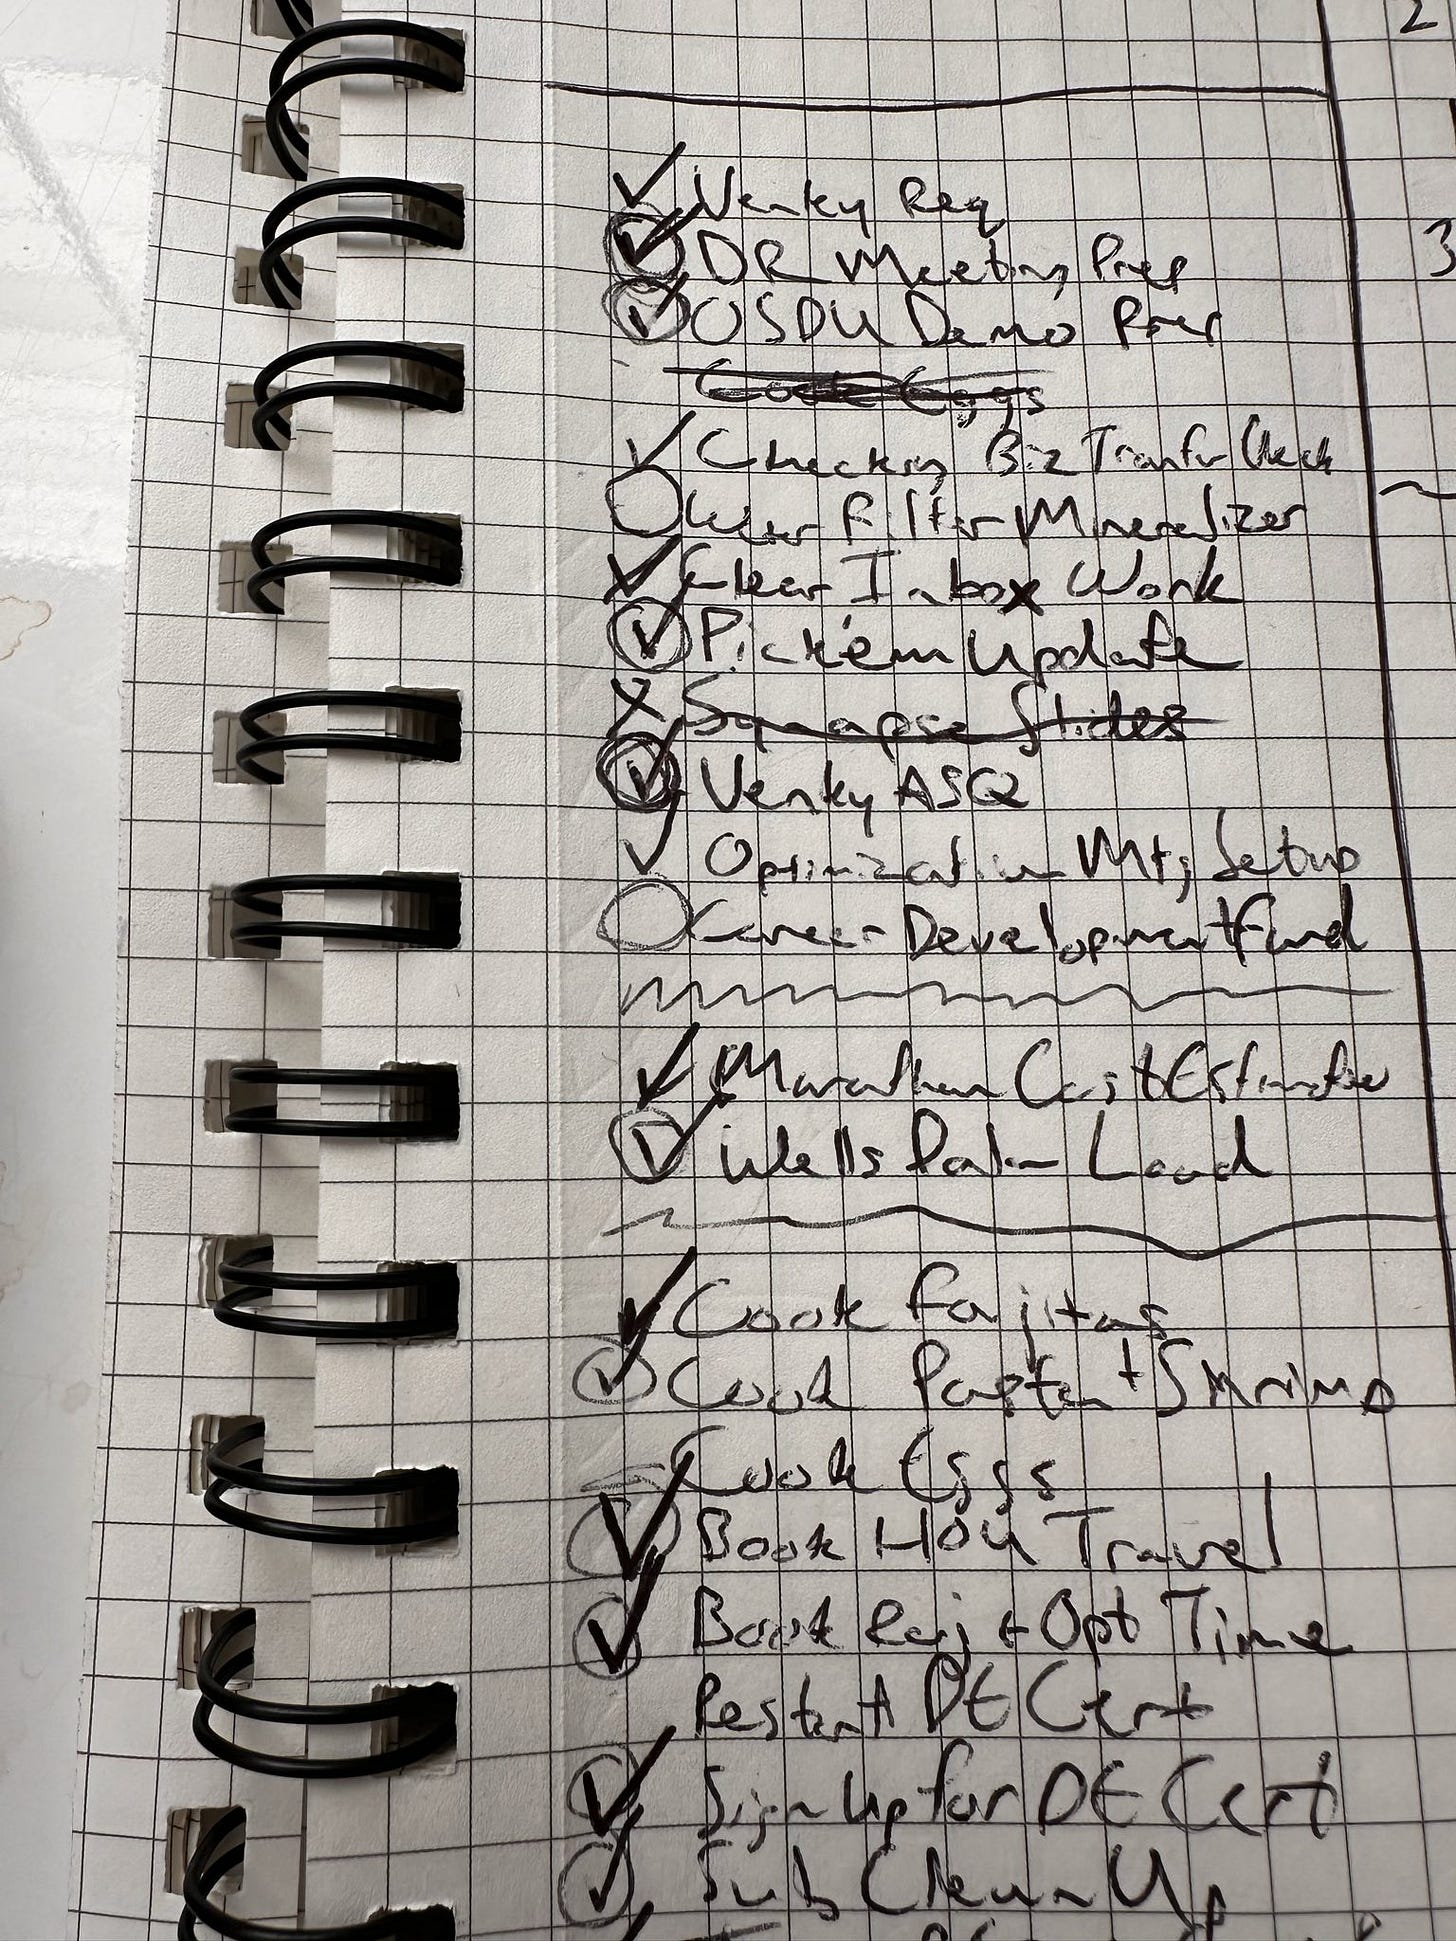 2
Venky Req
3
DR Meeting Prep
OSDU Demo Prep
Cook Eggs
Checking Biz Transfer Check
Water Filter Mineralizer
Clear Inbox Work
Pick'em Update
Synapse Slides
Venky ASQ
Optimization Mtg Setup
Career Development Fund
Marathon Cost Estimator
Wells Data Load
Cook Fajitas
Cook Pasta + Shrimp
Cook Eggs
Book HOU Travel
Book + Opt Time
Restart DE Cert
Sign Up for DE Cert
Sub Clean Up